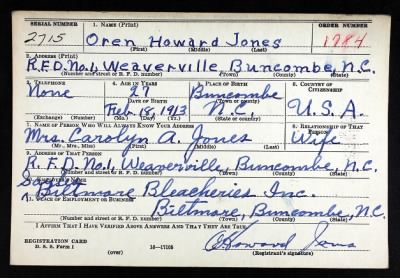 SERIAL NUMBER 1. NAME (Print) ORDER NUMBER
2715 Oren Howard Jones 1784
(First) (Middle) (Last)
2. ADDRESS (Print)
R.F.D. No. 1, Weaverville, Buncombe, N.C.
(Number and street or R. F. D. number) (Town) (County) (State)
3. TELEPHONE 4. AGE IN YEARS 5. PLACE OF BIRTH 6. COUNTRY OF CITIZENSHIP
None 27 Buncombe
DATE OF BIRTH (Town or county)
Feb. 18, 1913 N.C. U.S.A.
(Exchange) (Number) (Mo.) (Day) (Yr.) (State or country)
7. NAME OF PERSON WHO WILL ALWAYS KNOW YOUR ADDRESS 8. RELATIONSHIP OF THAT PERSON
Mrs. Carolyn A. Jones Wife
(Mr., Mrs., Miss) (First) (Middle) (Last)
9. ADDRESS OF THAT PERSON
R.F.D. No. 1, Weaverville, Buncombe, N.C.
(Number and street or R. F. D. number) (Town) (County) (State)
10. EMPLOYER'S NAME
Biltmore Bleacheries Inc.
11. PLACE OF EMPLOYMENT OR BUSINESS
Biltmore, Buncombe, N.C.
(Number and street or R. F. D. number) (Town) (County) (State)
I AFFIRM THAT I HAVE VERIFIED ABOVE ANSWERS AND THAT THEY ARE TRUE.
REGISTRATION CARD O Howard Jones
D. S. S. Form 1 16—17105
(over) (Registrant's signature)